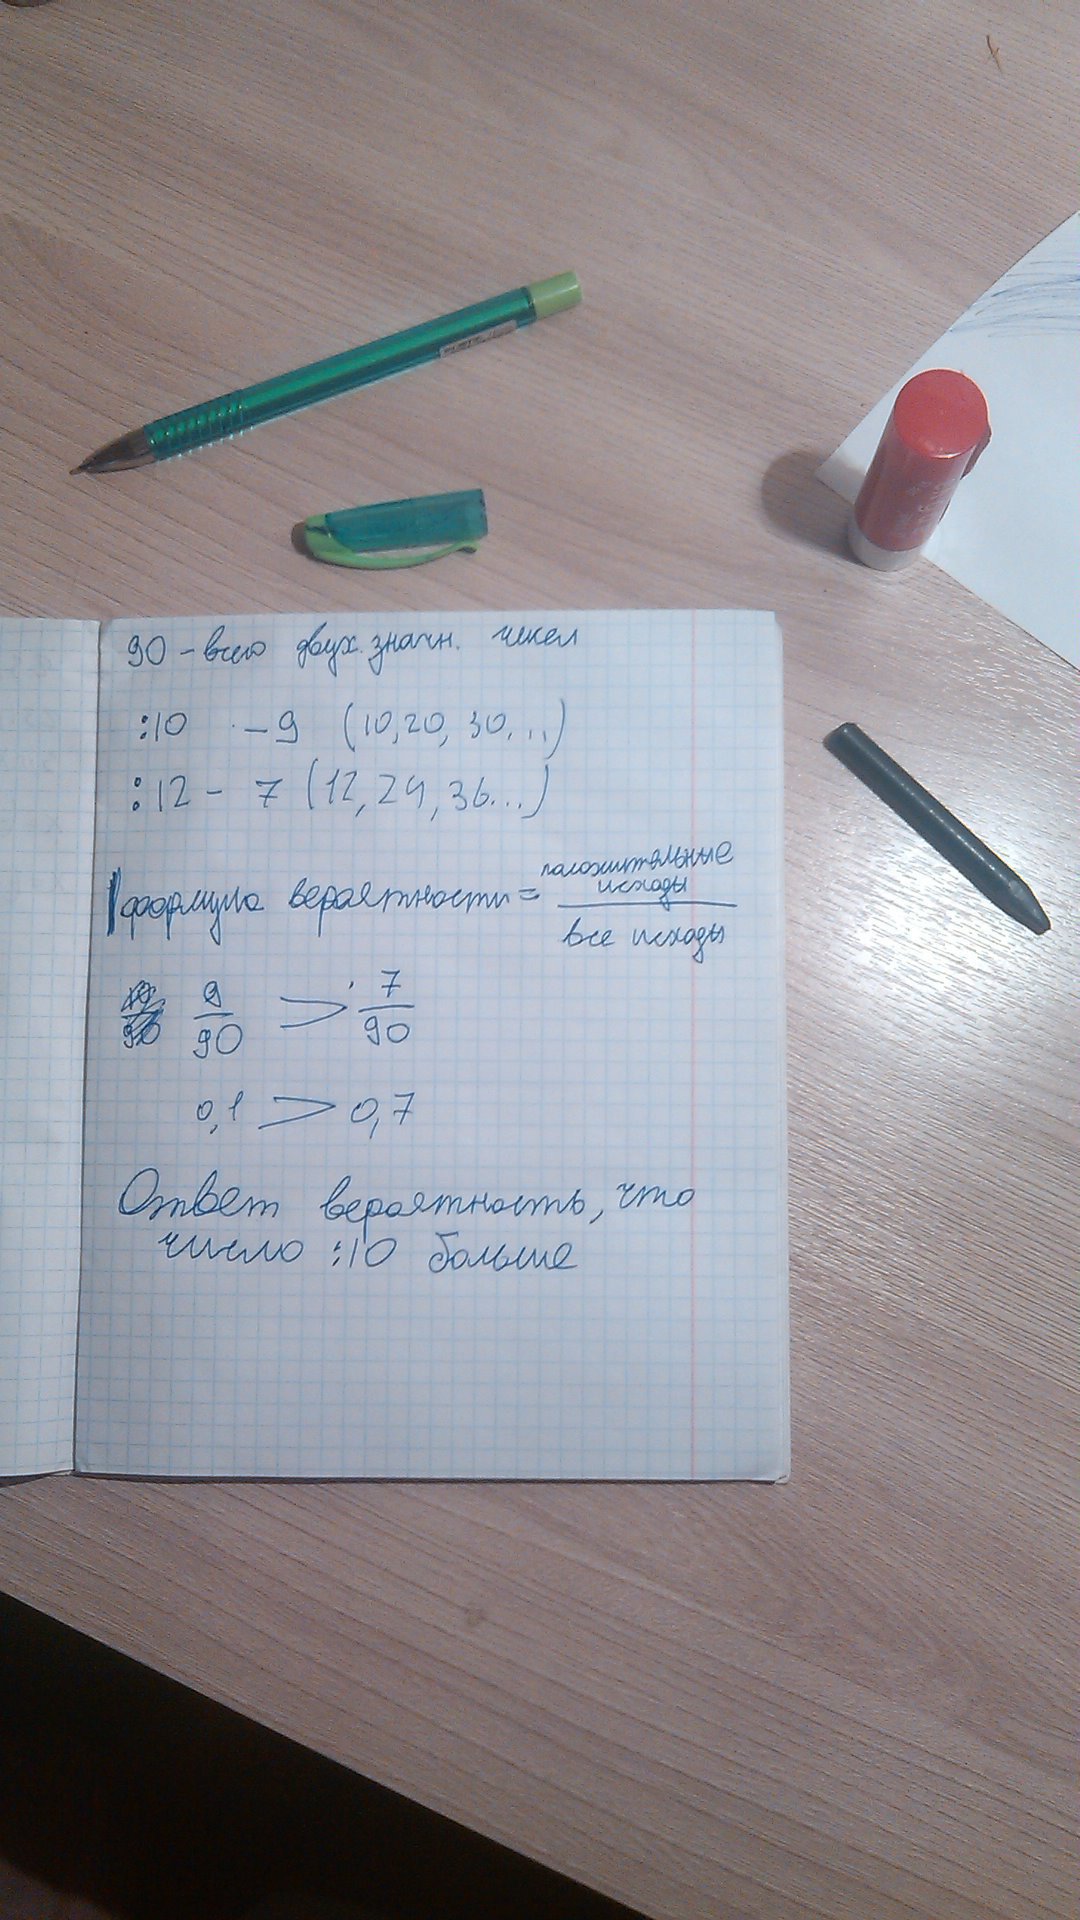 90 - всего двух.значн. чисел
:10 - 9 (10,20,30...)
:12 - 7 (12,24,36...)
формула вероятности = положительные исходы / все исходы
9/90 > 7/90
0,1 > 0,7
Ответ вероятность, что
число :10 больше